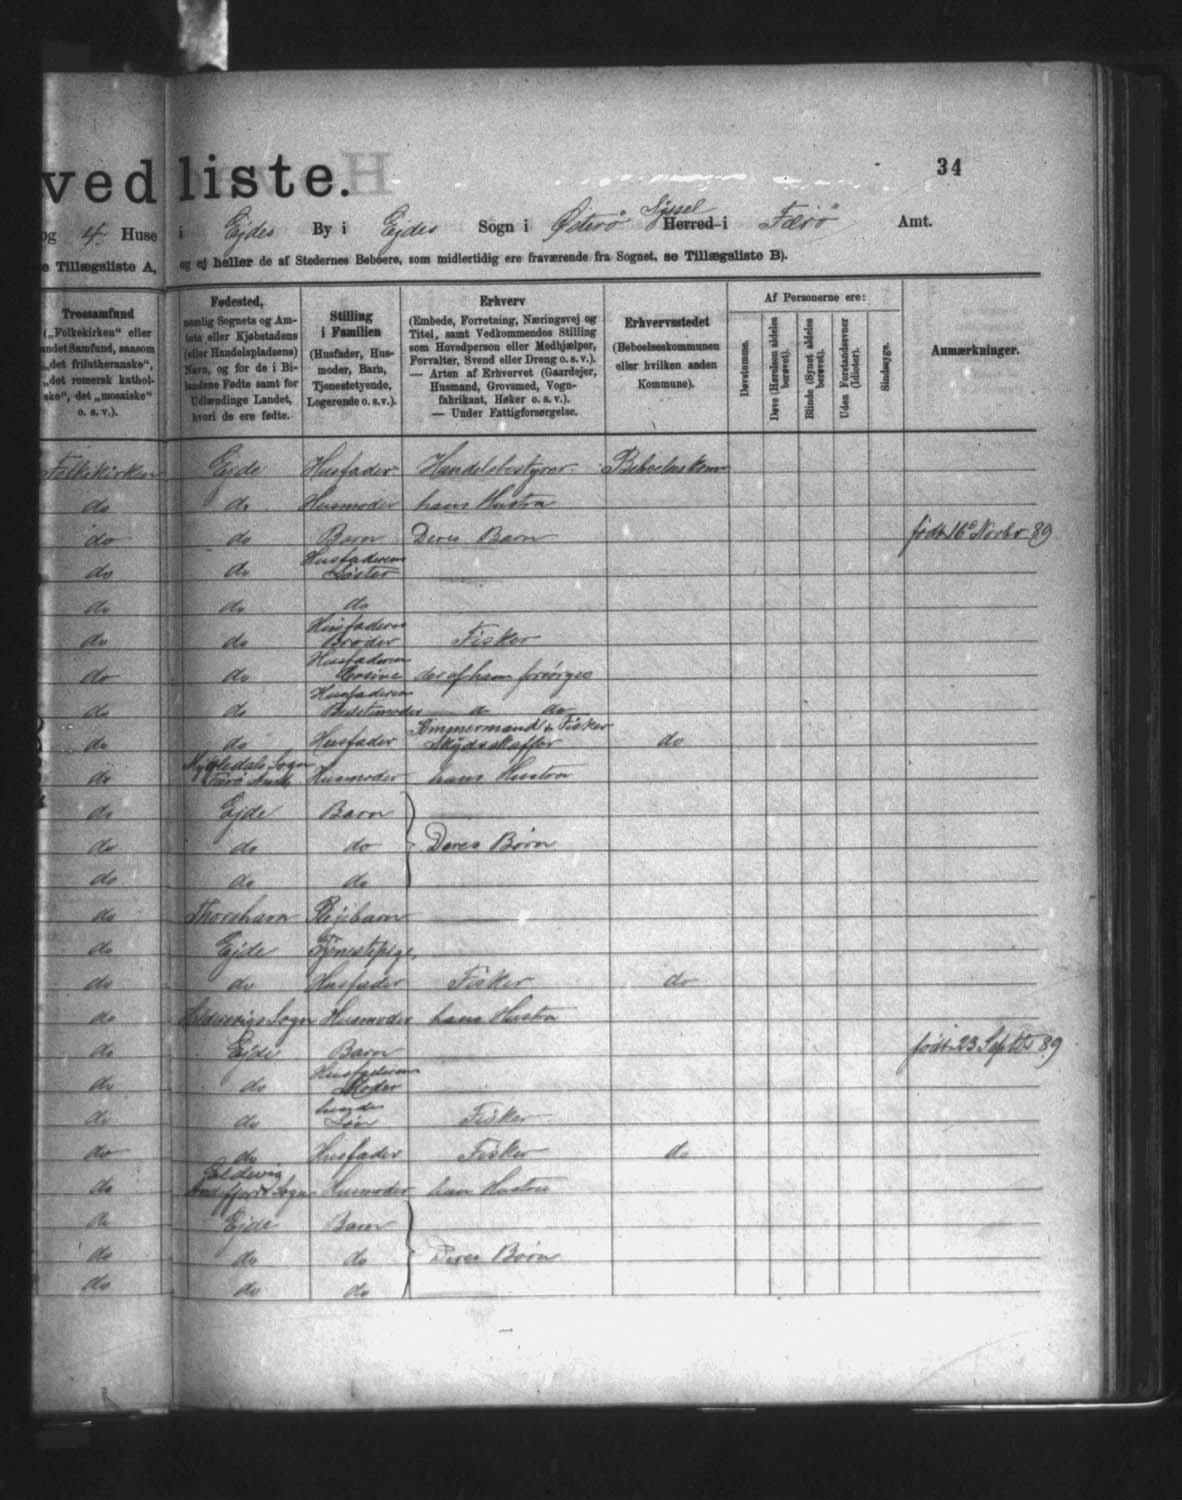 vedliste.
34
og 4 Huse i Ejdes By i Ejdes Sogn i Østerø Syssel Herred i Færø Amt.
e Tillægsliste A, og ej heller de af Stedernes Beboere, som midlertidig ere fraværende fra Sognet, se Tillægsliste B).
Trossamfund
(„Folkekirken“ eller
andet Samfund, saasom
„det frilutheranske“,
„det romersk kathol-
ske“, det „mosaiske“
o. s. v.).
Fødested,
nemlig Sognets og Am-
tets eller Kjøbstadens
(eller Handelspladsens)
Navn, og for de i Bi-
landene Fødte samt for
Udlændinge Landet,
hvori de ere fødte.
Stilling
i Familien
(Husfader, Hus-
moder, Barn,
Tjenestetyende,
Logerende o. s. v.).
Erhverv
(Embede, Forretning, Næringsvej og
Titel, samt Vedkommendes Stilling
som Hovedperson eller Medhjælper,
Forvalter, Svend eller Dreng o. s. v.).
— Arten af Erhvervet (Gaardejer,
Husmand, Grovsmed, Vogn-
fabrikant, Høker o. s. v.).
— Under Fattigforsørgelse.
Erhvervsstedet
(Beboelseskommunen
eller hvilken anden
Kommune).
Af Personerne ere:
Døvstumme.
Døve (Hørelsen aldeles
berøvet).
Blinde (Synet aldeles
berøvet).
Uden Forstandsevner
(Idioter).
Sindssyge.
Anmærkninger.
Folkekirken Ejde Husfader Handelsbestyrer Beboelseskom
do do Husmoder hans Hustru
do do Barn Deres Barn født 16 Novbr 89
do do Husfaderens Søster
do do do
do do Husfaderens Broder Fisker
do do Husfaderens Cosine der af ham forsørges
do do Husfaderens Bedstemoder do
do do Husfader Tømmermand & Fisker Skydsskaffer do
do Sogn Færø Amt Husmoder hans Hustru
do Ejde Barn
do do do Deres Børn
do do do
do Thorshavn Plejebarn
do Ejde Tjenestepige
do do Husfader Fisker do
do Sogn Husmoder hans Hustru
do Ejde Barn født 23 Septbr 89
do do Husfaderens Moder
do do Søn Fisker
do do Husfader Fisker do
do Sogn Husmoder hans Hustru
do Ejde Barn
do do do Deres Børn
do do do